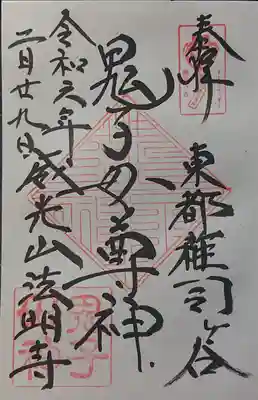 奉拝
東都雑司ヶ谷
鬼子母尊神
令和六年
二月廿九日
威光山法明寺